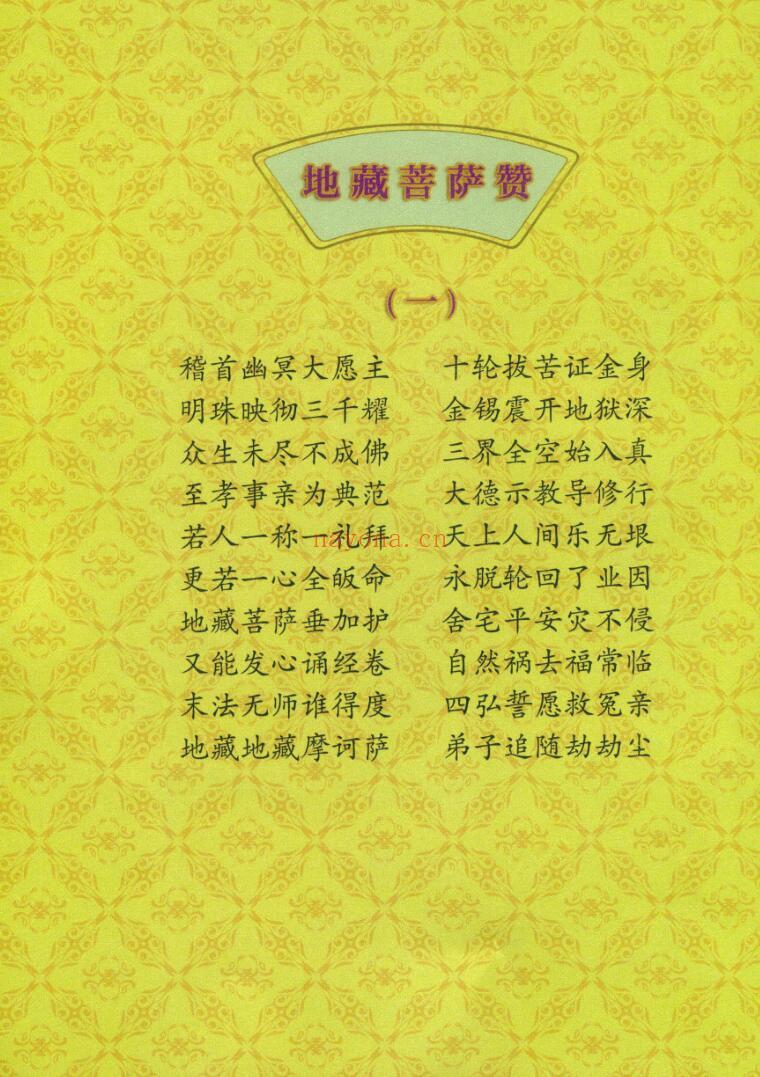 地藏菩萨赞
（一）
稽首幽冥大愿主 十轮拔苦证金身
明珠映彻三千耀 金锡震开地狱深
众生未尽不成佛 三界全空始入真
至孝事亲为典范 大德示教导修行
若人一称一礼拜 天上人间乐无垠
nayona.cn
更若一心全皈命 永脱轮回了业因
地藏菩萨垂加护 舍宅平安灾不侵
又能发心诵经卷 自然祸去福常临
末法无师谁得度 四弘誓愿救冤亲
地藏地藏摩诃萨 弟子追随劫劫尘